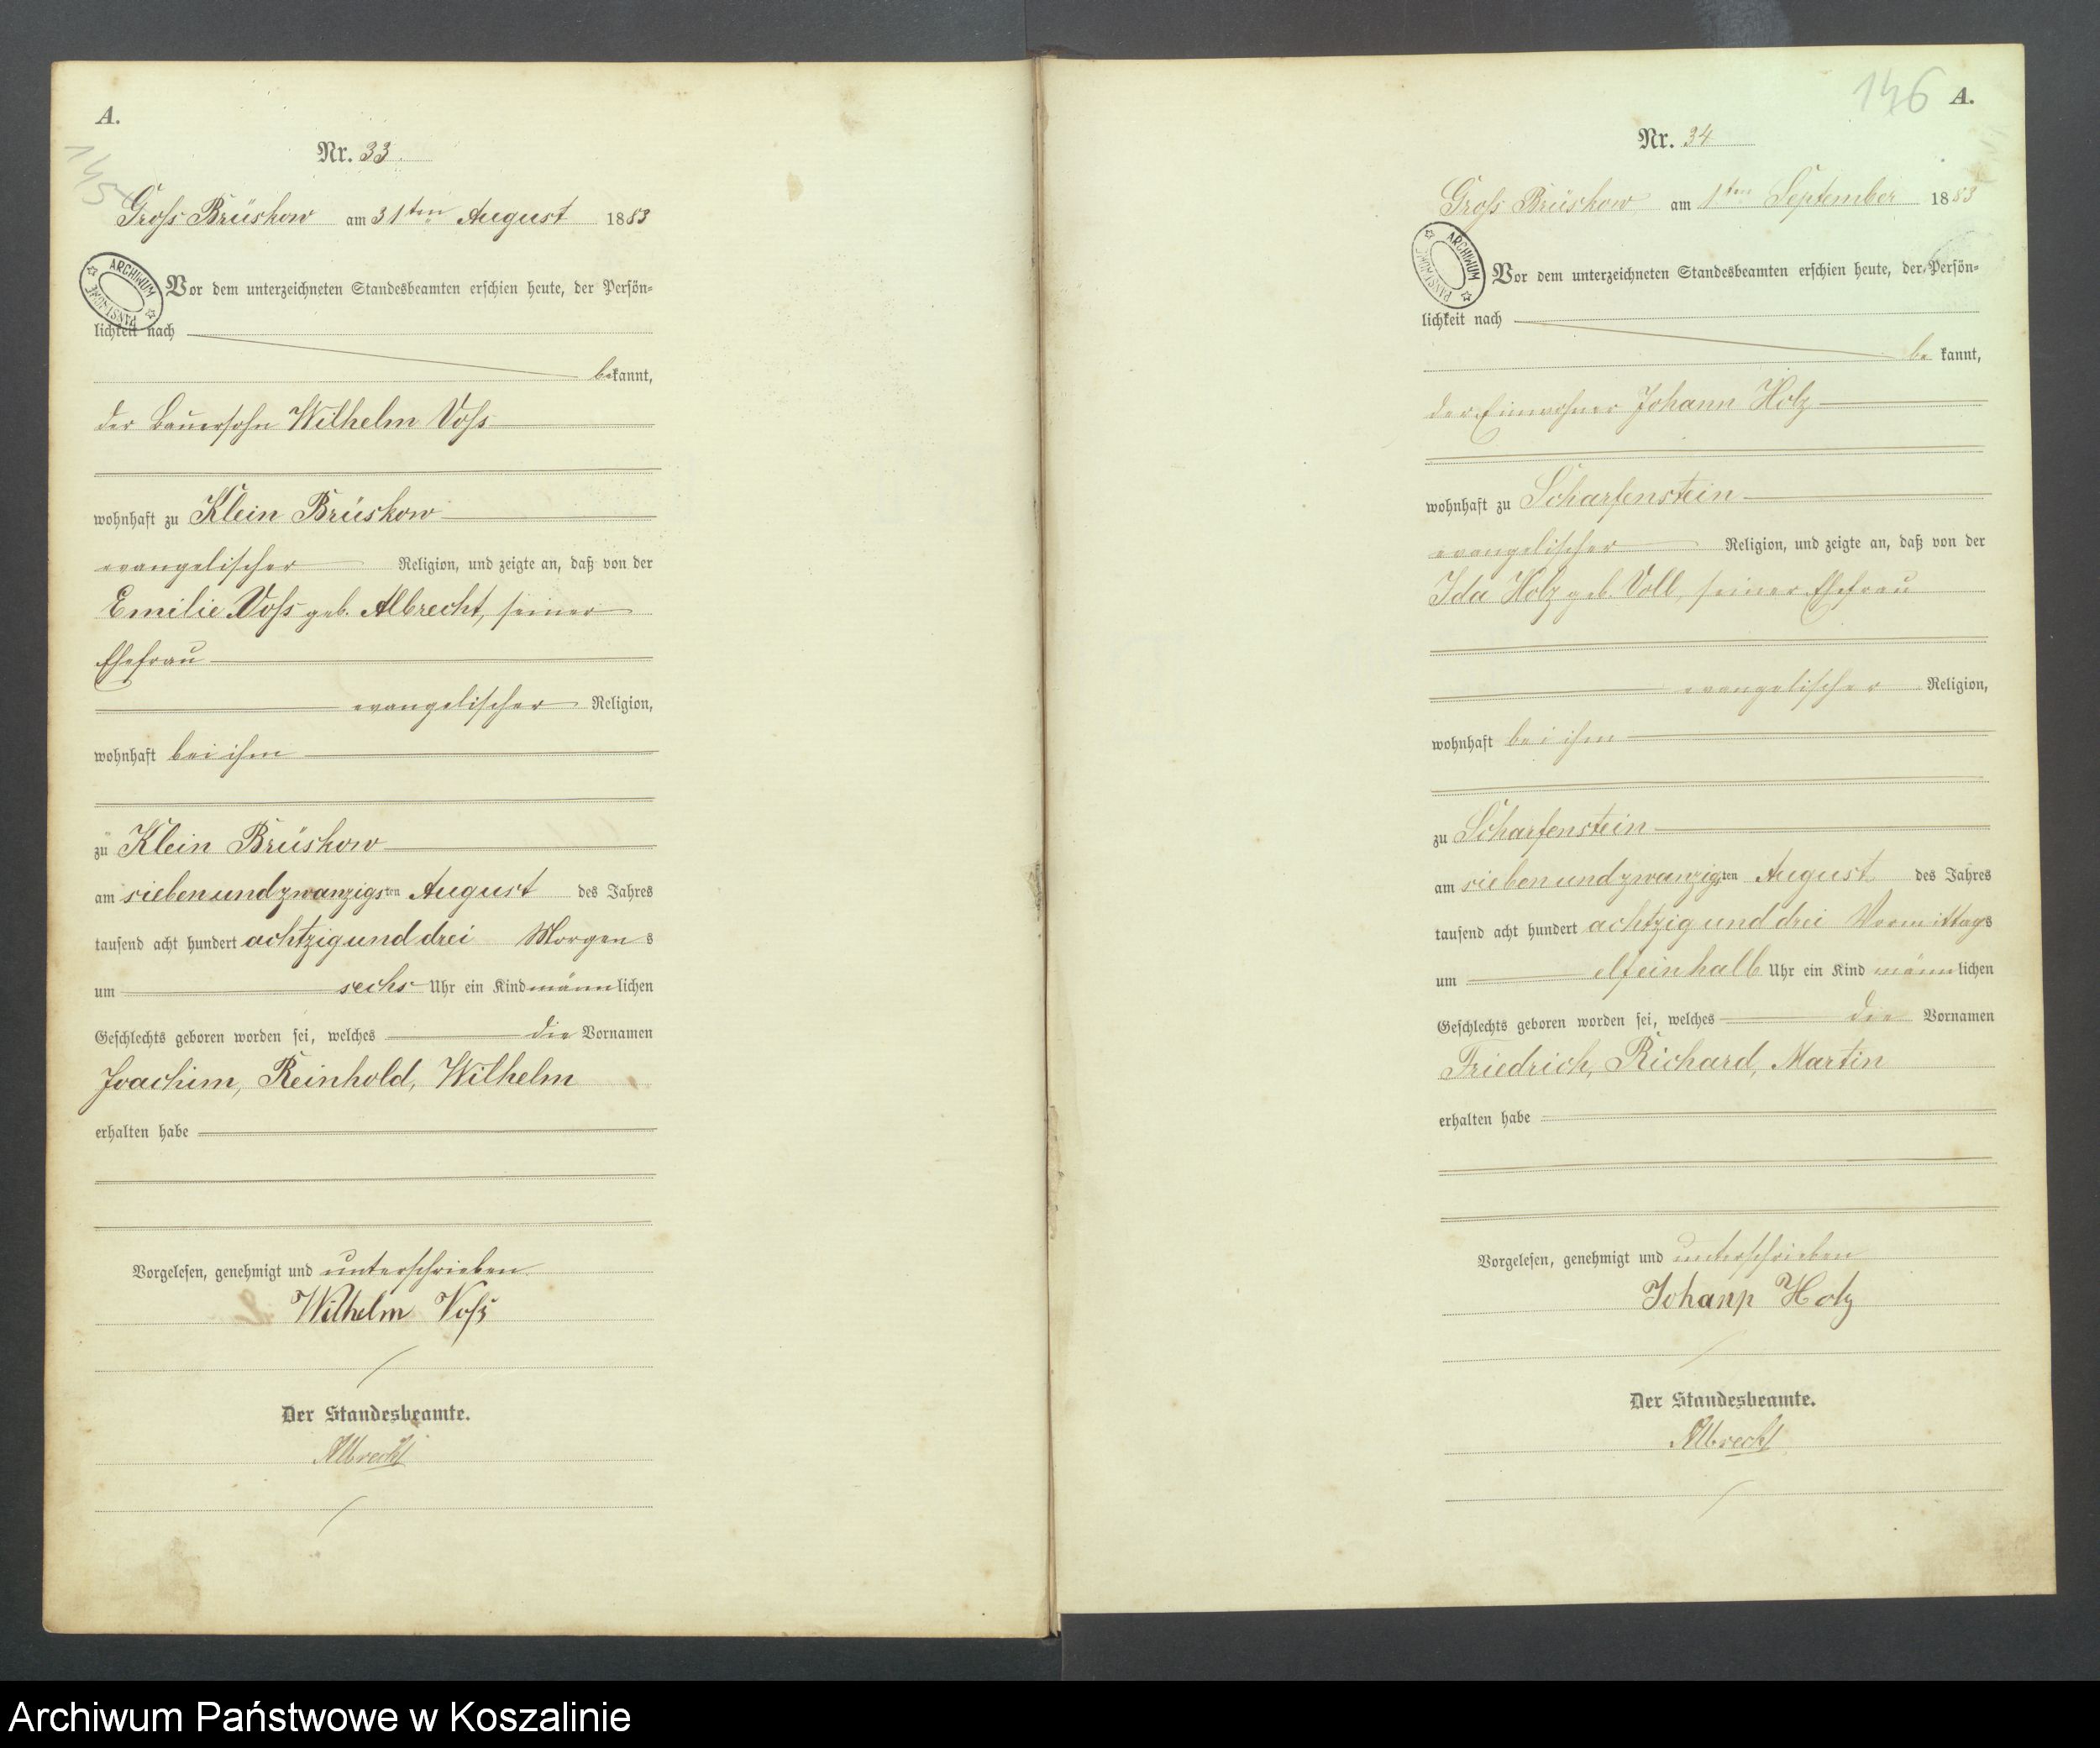 A.
145
Nr. 33.
Gross Brüskow am 31ten August 1883
ARCHIWUM PAŃSTWOWE
Vor dem unterzeichneten Standesbeamten erschien heute, der Persön=
lichkeit nach
bekannt,
der Bauersohn Wilhelm Voss
wohnhaft zu Klein Brüskow
evangelischer Religion, und zeigte an, daß von der
Emilie Voss geb. Albrecht, seiner
Ehefrau
evangelischer Religion,
wohnhaft bei ihm
zu Klein Brüskow
am siebenundzwanzigsten August des Jahres
tausend acht hundert achtzig und drei Morgens
um sechs Uhr ein Kind männlichen
Geschlechts geboren worden sei, welches die Vornamen
Joachim, Reinhold, Wilhelm
erhalten habe
Vorgelesen, genehmigt und unterschrieben
Wilhelm Voss
Der Standesbeamte.
Albrecht
146 A.
Nr. 34
Gross Brüskow am 1ten September 1883
ARCHIWUM PAŃSTWOWE
Vor dem unterzeichneten Standesbeamten erschien heute, der Persön=
lichkeit nach
bekannt,
der Einwohner Johann Holz
wohnhaft zu Scharfenstein
evangelischer Religion, und zeigte an, daß von der
Ida Holz geb. Voll, seiner Ehefrau
evangelischer Religion,
wohnhaft bei ihm
zu Scharfenstein
am siebenundzwanzigsten August des Jahres
tausend acht hundert achtzig und drei Vormittags
um elfeinhalb Uhr ein Kind männlichen
Geschlechts geboren worden sei, welches die Vornamen
Friedrich, Richard, Martin
erhalten habe
Vorgelesen, genehmigt und unterschrieben
Johann Holz
Der Standesbeamte.
Albrecht
Archiwum Państwowe w Koszalinie